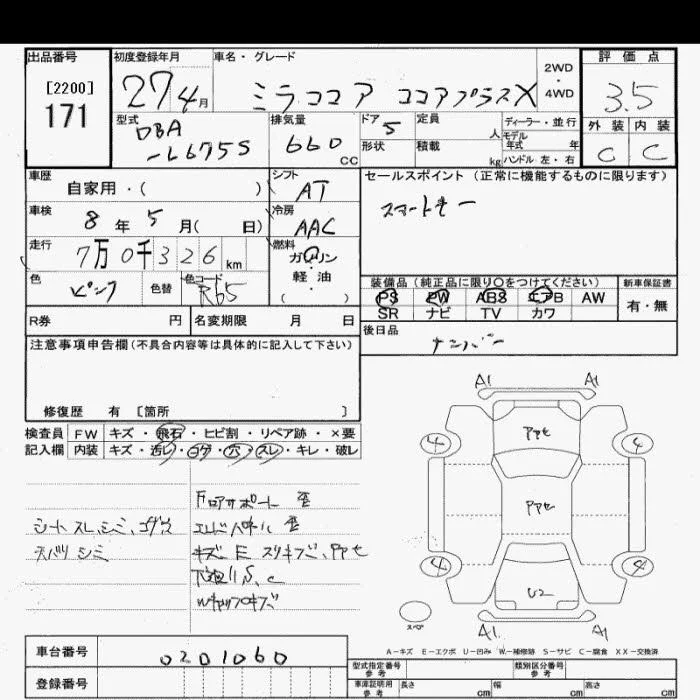 出品番号
[2200]
171
初度登録年月
27 4月
車名・グレード
ミラココア ココアプラスX
2WD
・
4WD
評価点
3.5
外装 内装
C C
型式
DBA
-L675S
排気量
660 cc
ドア 5
形状
定員 人
積載 kg
ディーラー・並行
モデル年式 年
ハンドル 左・右
車歴
自家用・( )
シフト
AT
車検
8年 5月( 日)
冷房
AAC
走行
7万 0千 326 km
燃料
ガソリン
・
軽油
( )
色
ピンク
色替
色コード
R65
セールスポイント(正常に機能するものに限ります)
スマートキー
装備品(純正品に限り〇をつけてください)
PS PW ABS エアB AW
SR ナビ TV カワ
新車保証書
有・無
R券 円
名変期限 月 日
後日品
ナンバー
注意事項申告欄(不具合内容等は具体的に記入して下さい)
修復歴 有 〔箇所 〕
検査員
記入欄
FW キズ・飛石・ヒビ割・リペア跡・×要
内装 キズ・汚レ・コゲ・穴・スレ・キレ・破レ
シートスレ、シミ、コゲ穴
天バリシミ
Fロアサポート 歪
エンドパネル 歪
下廻りS、C
Wキャップキズ
A1 A1
アセ
4 4
アセ
4 4
U2
A1 A1
スペア
A-キズ E-エクボ U-凹み W-補修跡 S-サビ C-腐食 XX-交換済
車台番号
0201060
登録番号
型式指定番号
参考
類別区分番号
参考
車庫証明用
参考
長さ cm 幅 cm 高さ cm